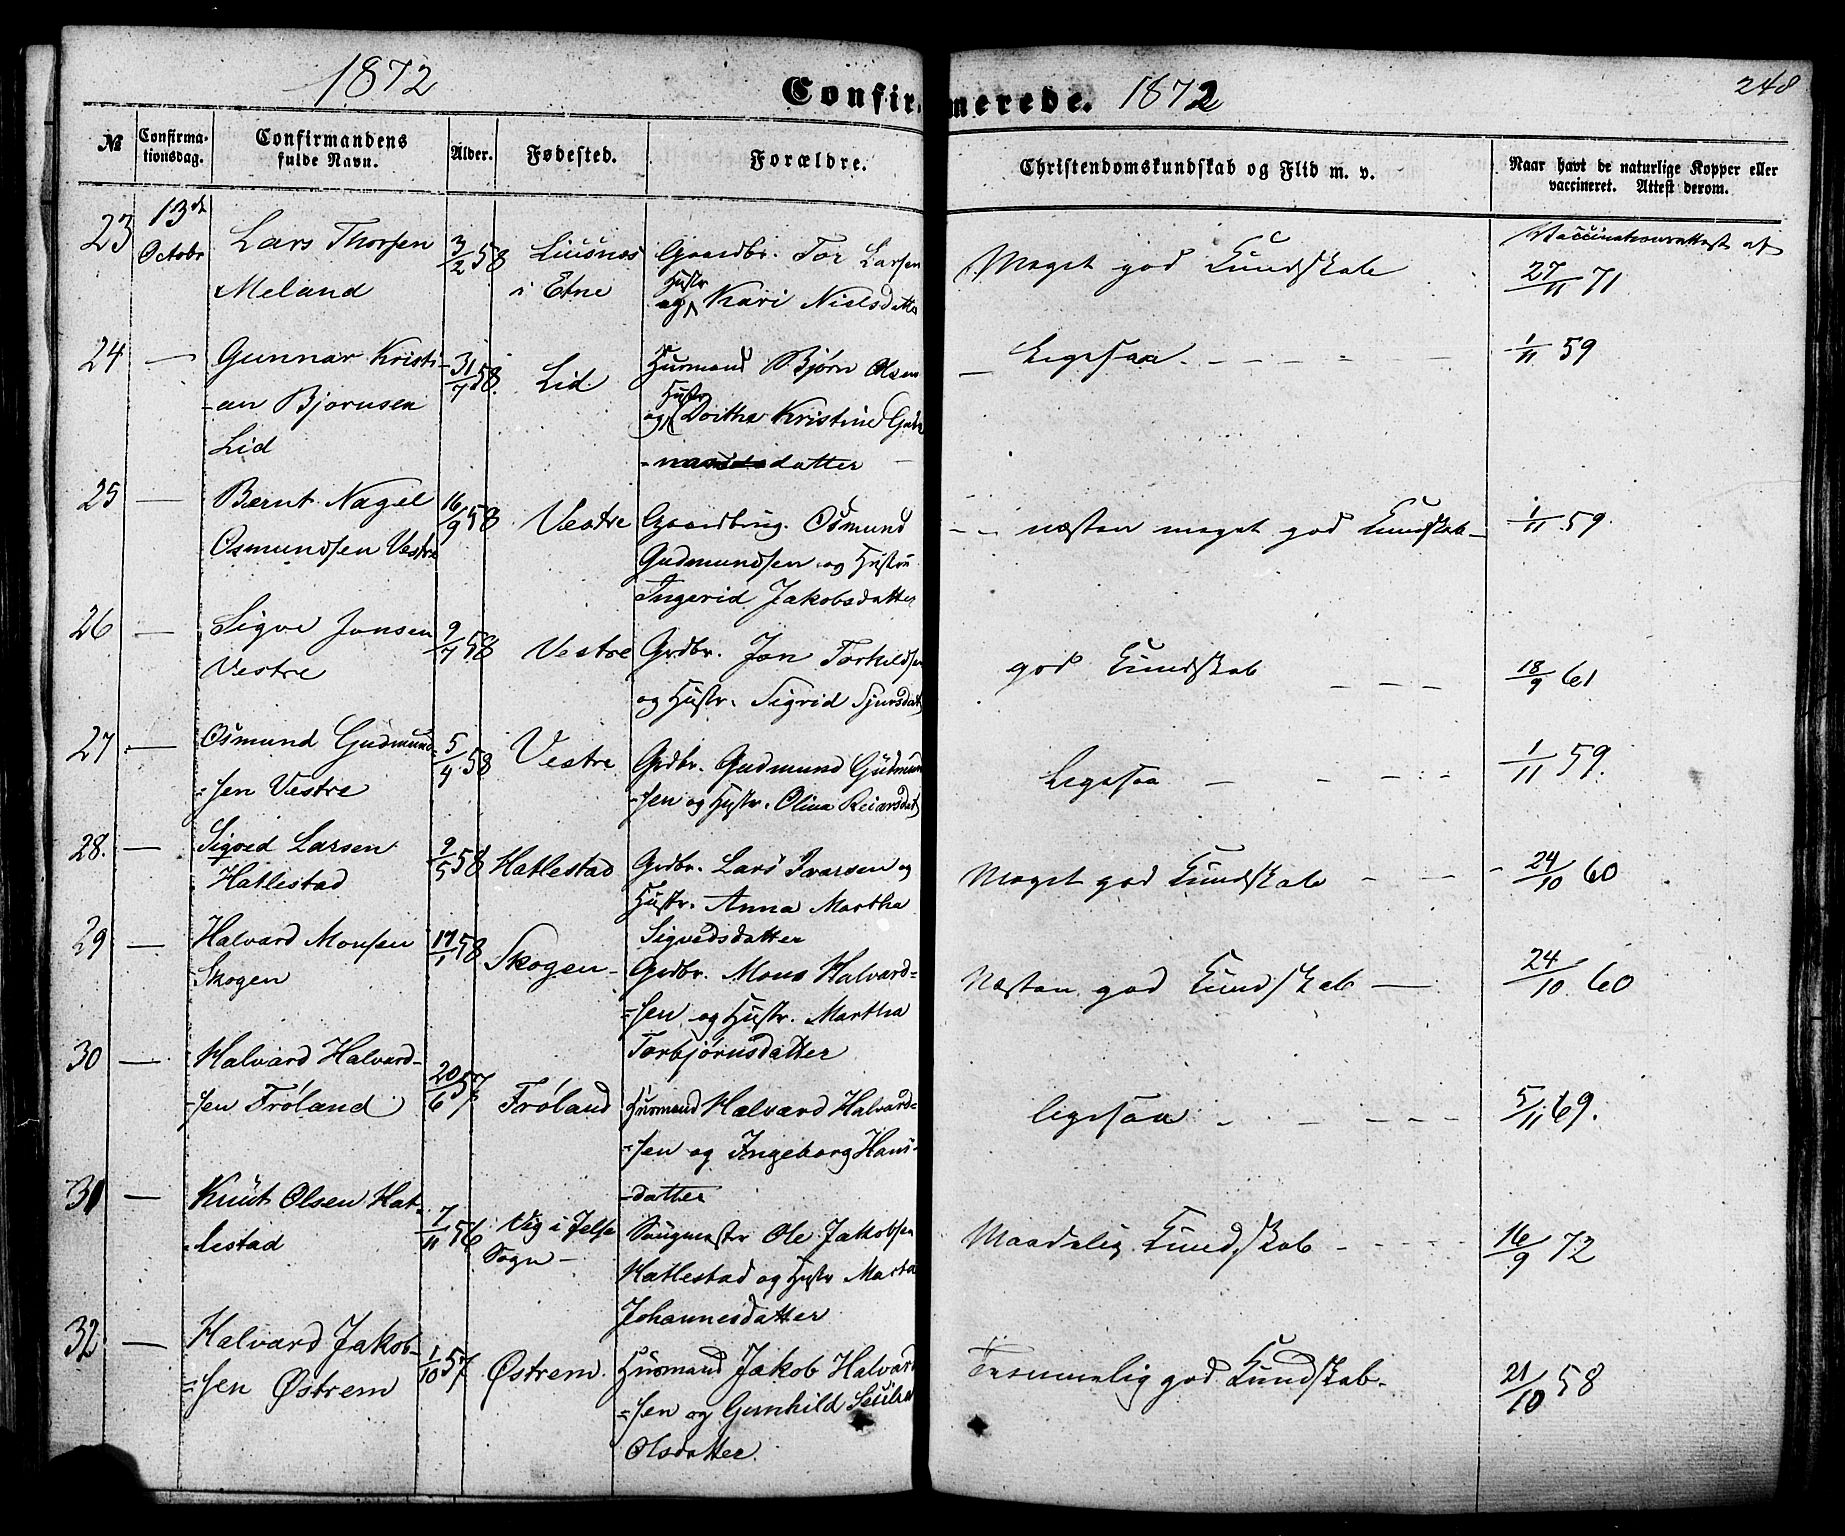 1872
Confirmerede. 1872
248
№ Confirmationsdag. Confirmandens fulde Navn. Alder. Fødested. Forældre. Christendomskundskab og Flid m. v. Naar havt de naturlige Kopper eller vaccineret. Attest derom.
23 13de Lars Thorsen 3/2 58 Gaardbr. Tor Larsen Meget god Kundskab Vaccinationsattest af
Octobr Meland i Etne og Hustr Kari Nielsdatter 27/11 71
24 — Gunnar Kristi- 31/7 58. Lid Husmand Bjørn Olsen Ligesaa 1/11 59
-an Bjornsen og Hustr Kristine
Lid datter
25 — Bernt Nagel 16/9 58 Vestre Gaardbrug. Osmund næsten meget god Kundskab 1/11 59.
Osmundsen Vestre Gudmundsen og Hustru
Ingerid Jakobsdatter
26 — Sigve Jonsen 9/7 58 Vestre Grdbr. Jon Torkildsen god Kundskab 18/9 61
Vestre og Hustr. Sigrid Sjursdat
27 — Osmund Gudmund= 5/4 58 Vestre Grdbr. Gudmund Gudmun Ligesaa 1/11 59.
=sen Vestre =sen og Hustr. Olina Reiarsdat
28. — Sigved Larsen 9/5 58 Hatlestad Grdbr. Lars Ivarsen og Meget god Kundskab 24/10 60
Hatlestad Hustr. Anna Martha
Sigvedsdatter
29 — Halvard Monsen 17/1 58 Skogen Grdbr. Mons Halvard= Næsten god Kundskab 24/10 60
Skogen =sen og Hustr. Martha
Torbjørnsdatter
30 — Halvard Halvard- 20/6 57 Frøland Husmand Halvard Halvard= ligesaa 5/11 69.
=sen Frøland =sen og Ingeborg Hans-
-datter
31 — Knut Olsen Hat- 7/11 56 Vig i Jelse Ole Jakobsen Maadelig Kundskab 16/9 72
-lestad Sogn — Hatlestad og Hustr Marta
Johannesdatter
32 — Halvard Jakob- 1/10 57 Østrem. Husmand Jakob Halvard Temmelig god Kundskab. 21/10 58
=sen Østrem =sen og Gunhild
Olsdatter.